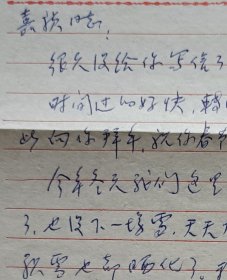 喜期同志：
很久没给你写信了
时间过的好快，转
此向你拜年，祝你春节
今年冬天我们这里
了，也没下一场雪，天天
积雪也都晒化了。